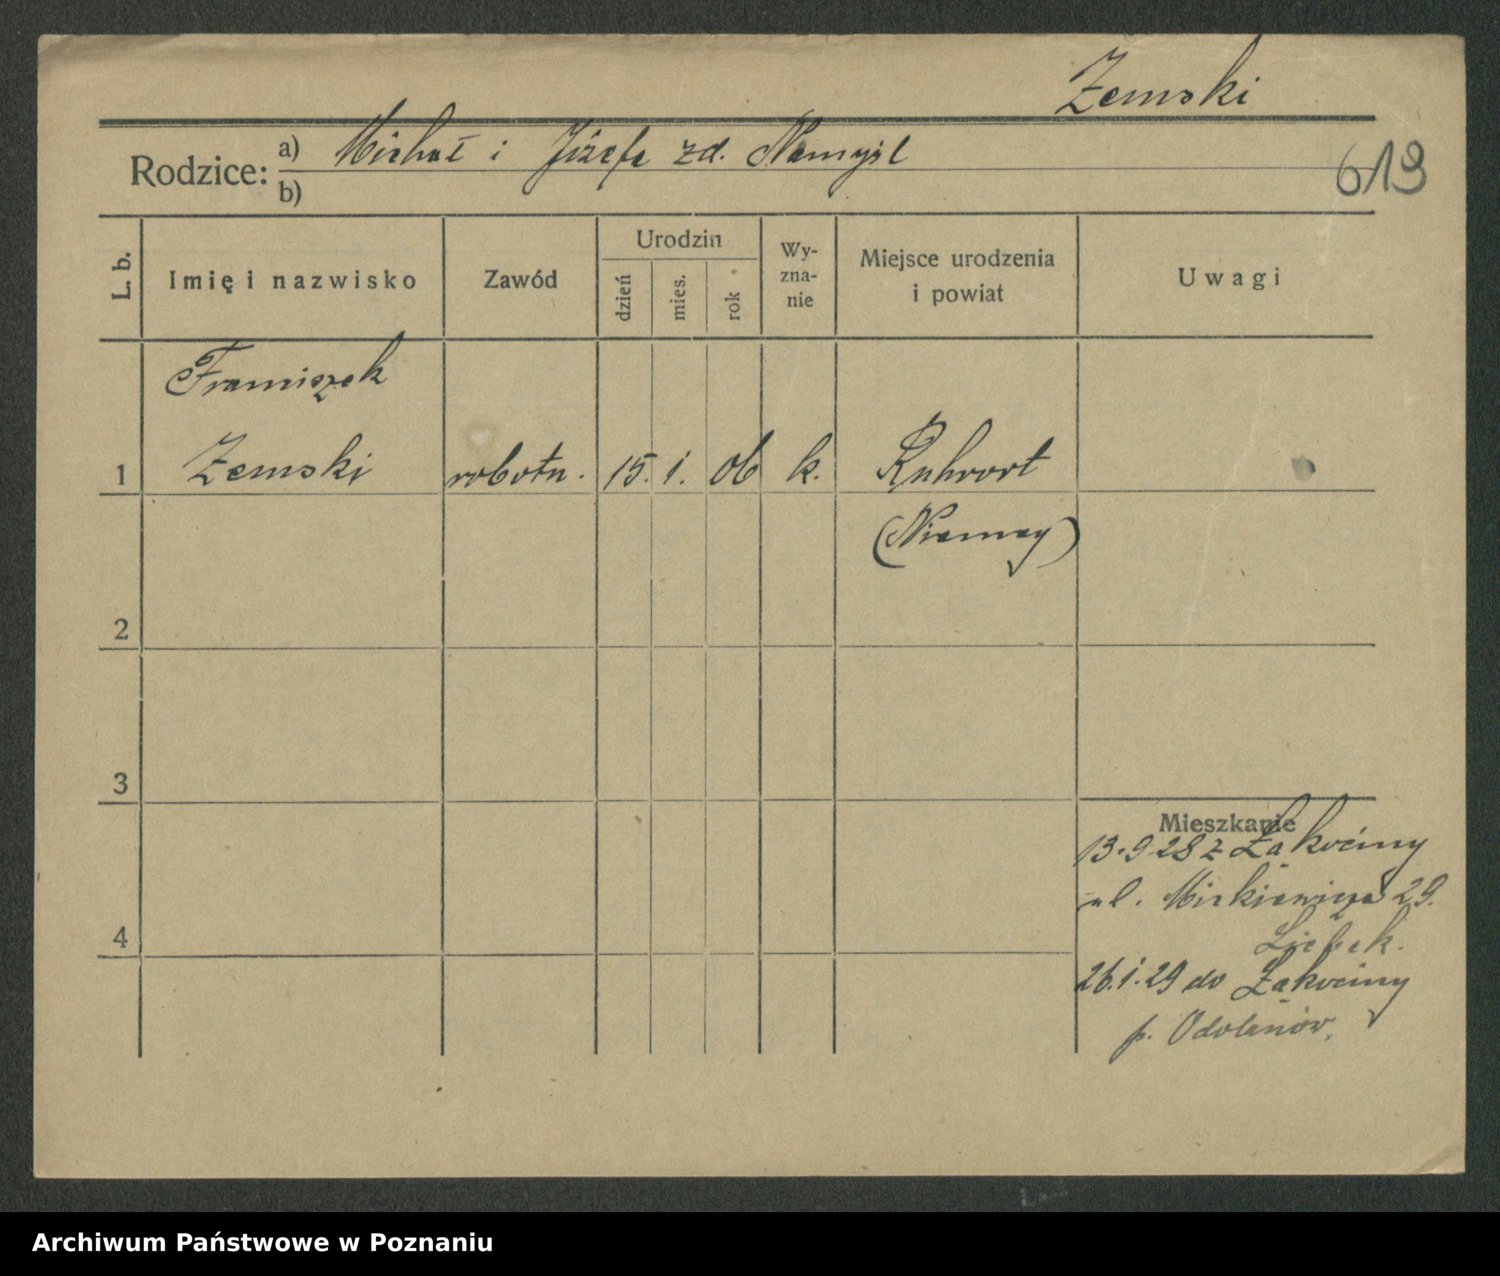 Żemski
Rodzice: a) Michał i Józefa zd. Namyśl
b)
619
L. b.
Imię i nazwisko
Zawód
Urodzin
dzień
mies.
rok
Wy-
zna-
nie
Miejsce urodzenia
i powiat
Uwagi
Franciszek
1 Żemski robotn. 15. 1. 06 k. Ruhrort
(Niemcy)
2
3
Mieszkanie
13.9.28 z Łąkociny
ul. Mickiewicza 29.
4
26.1.29 do Łąkociny
p. Odolanów.
Archiwum Państwowe w Poznaniu